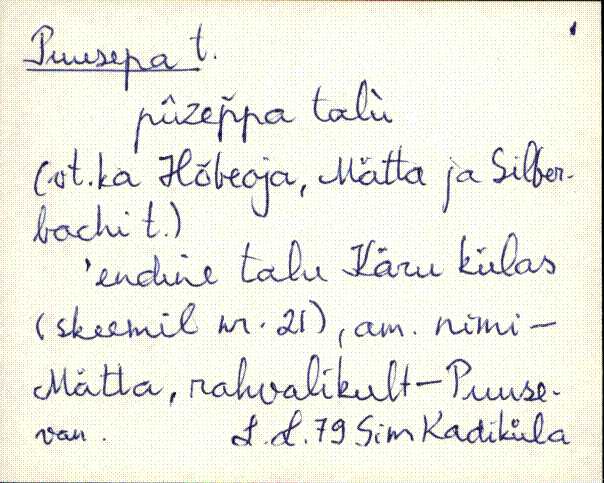 Puusepa t.
pûzep̌pa talù
(vt. ka Hõbeoja, Mätta ja Silber-
bachi t.)
'endine talu Käru külas
(skeemil nr. 21), am. nimi –
Mätta, rahvalikult – Puuse-
van. L.L. 79 Sim Kadiküla